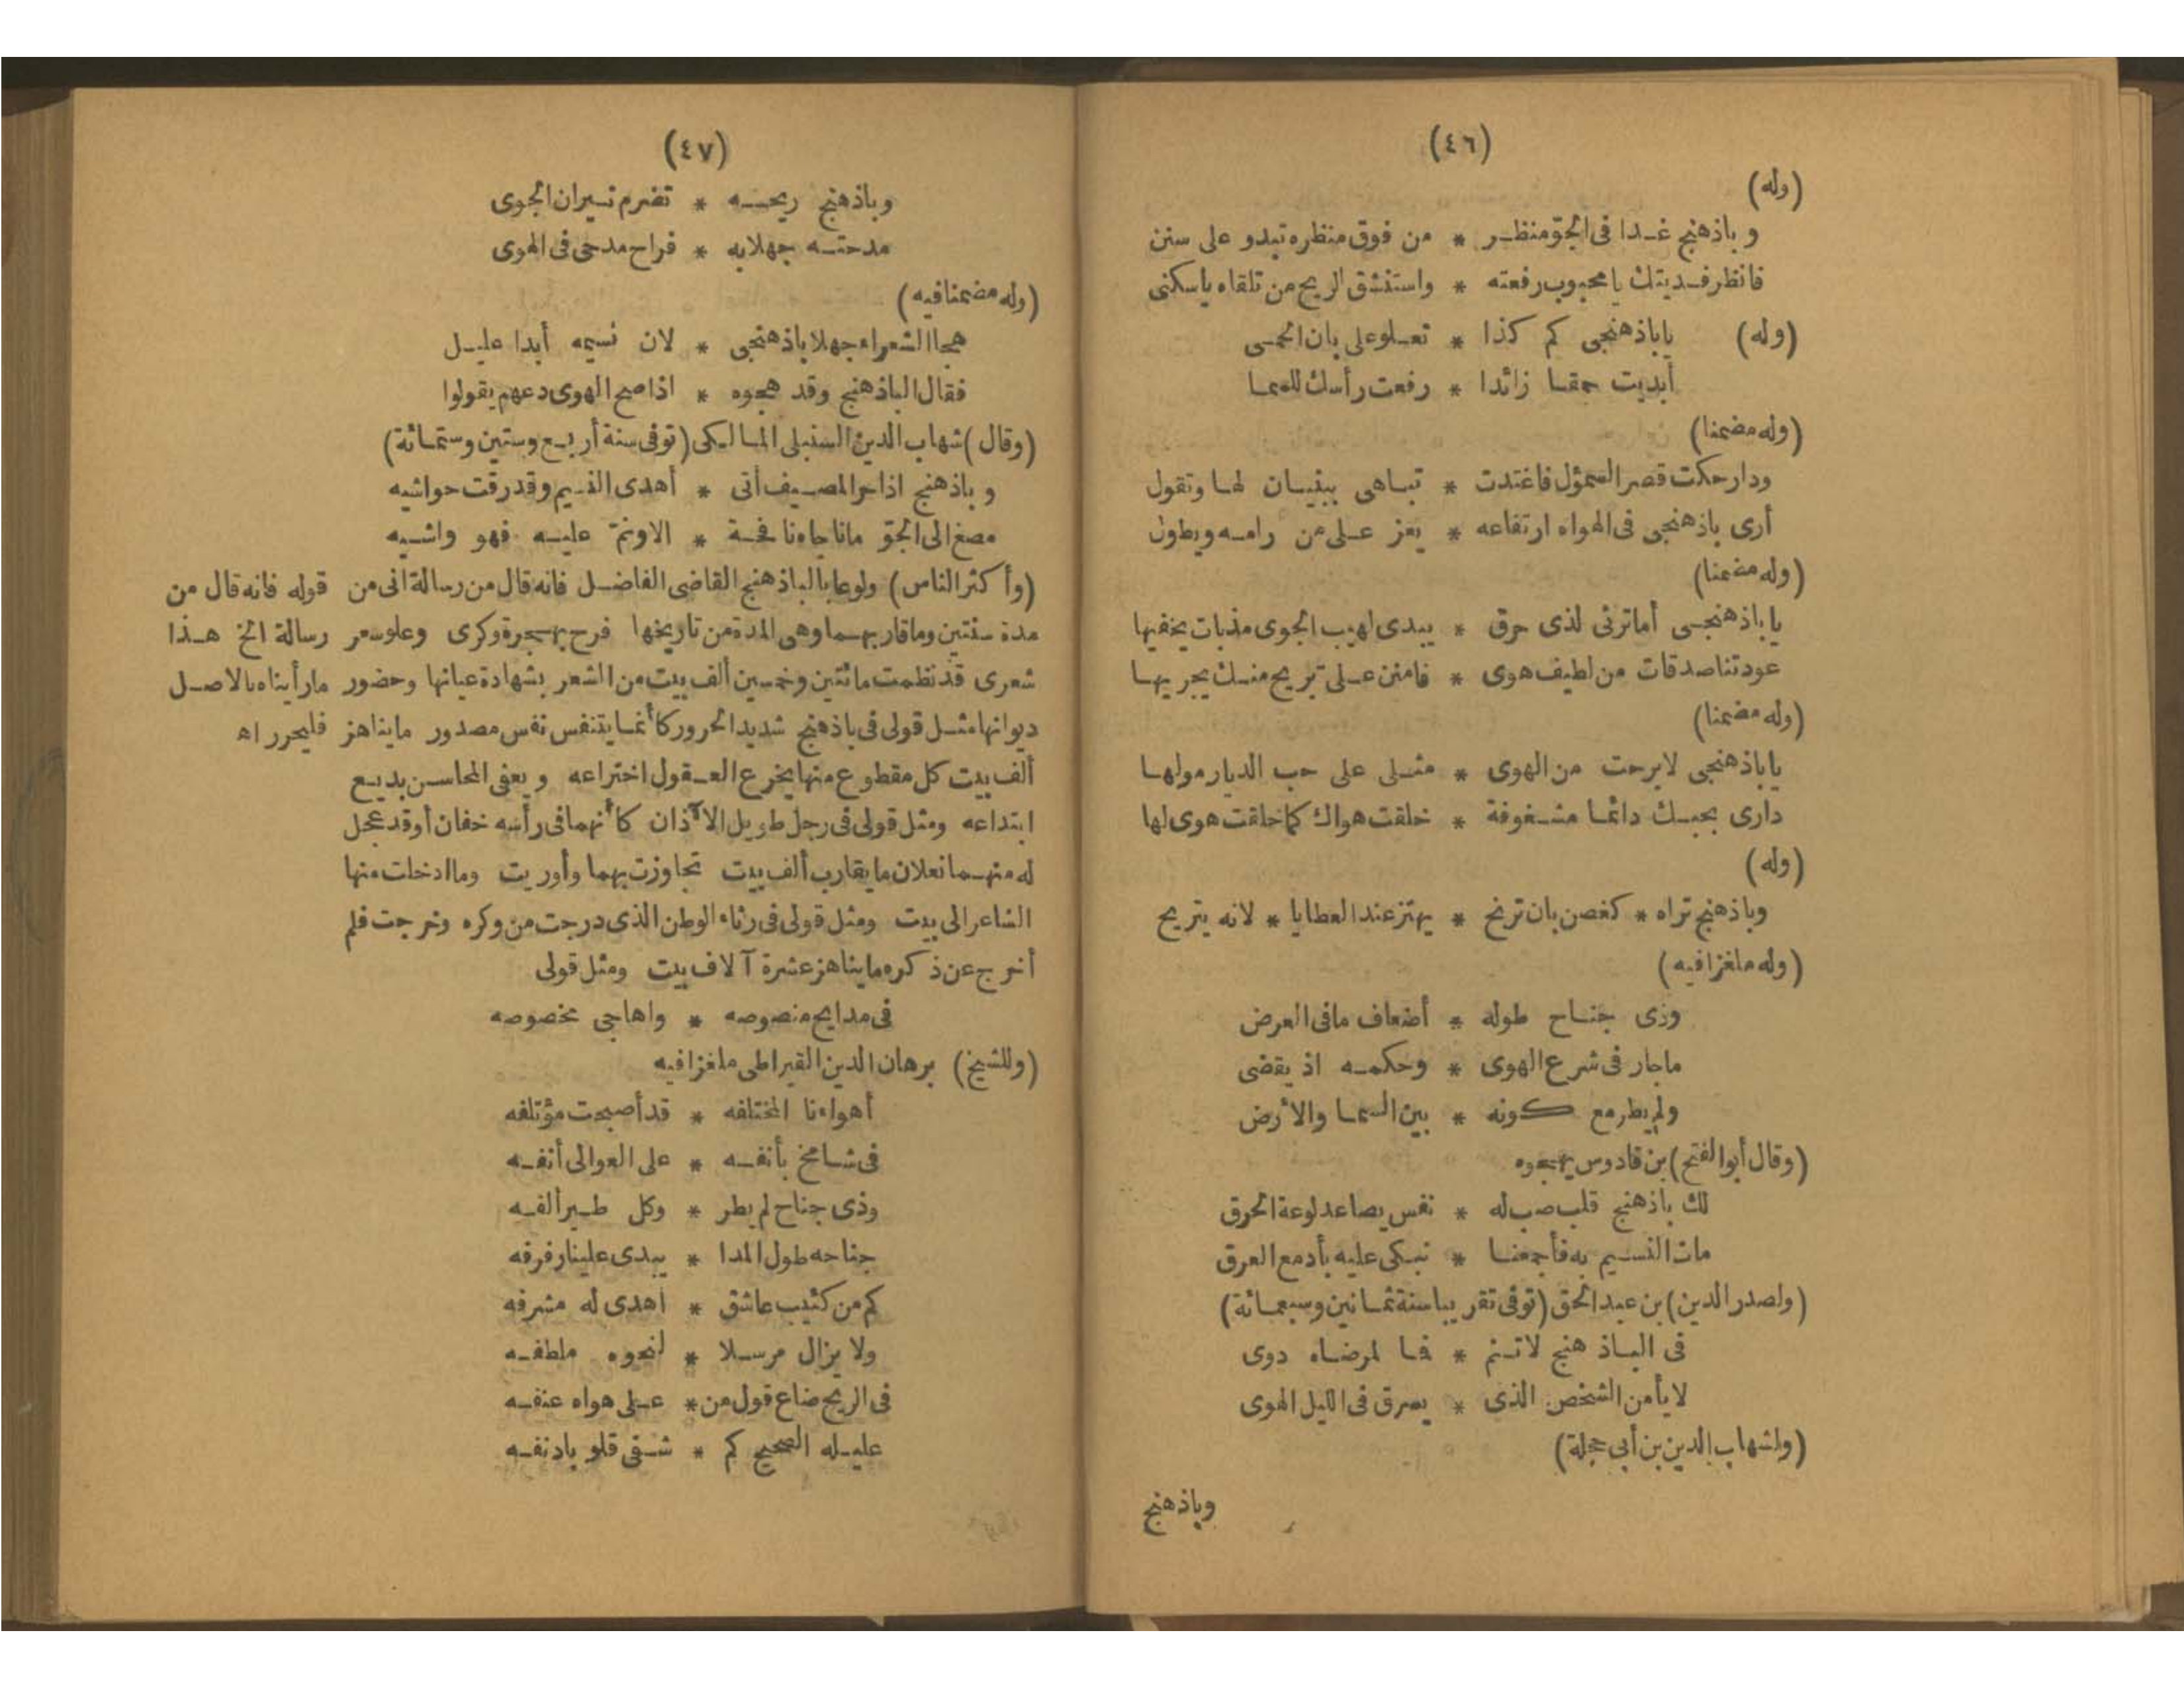 (٤٦)
(وله)
وباذهنج غدا فى الجوّ منظر * من فوق منظره تبدو على سنن
فانظر فديتك يا محبوب رفعته * واستنشق الريح من تلقاه ياسكنى
(وله) ياباذهنجى كم كذا * تعلو على بان الحمى
أبديت حمقا زائدا * رفعت رأسك للسما
(وله مضمنا)
ودار حكت قصر السمؤل فاغتدت * تباهى ببنيان لها وتقول
أرى باذهنجى فى الهواء ارتفاعه * يعز على من رامه ويطول
(وله مضمنا)
ياباذهنجى أما ترثى لذى حرق * يبدى لهيب الجوى مذبات يخفيها
عودتنا صدقات من لطيف هوى * فامنن على تبريح منك يجريها
(وله مضمنا)
ياباذهنجى لا برحت من الهوى * مثلى على حب الديار مولها
دارى بحبك دائما مشغوفة * خلقت هواك كما خلقت هوى لها
(وله)
وباذهنج تراه * كغصن بان ترنح * يهتز عند العطايا * لانه يتريح
(وله ملغزا فيه)
وذى جناح طوله * أضعاف مافى العرض
ماجار فى شرع الهوى * وحكمه اذ يقضى
ولم يطر مع كونه * بين السما والأرض
(وقال أبو الفتح) بن قادوس يهجوه
لك باذهنج قلب صب له * نفس يصاعد لوعة الحرق
مات النسيم به فأجمعنا * نبكى عليه بأدمع العرق
(ولصدر الدين) بن عبد الحق (توفى تقريبا سنة ثمانين وسبعمائة)
فى الباذهنج لا تنم * فما لمرضاه دوى
لا يأمن الشخص الذى * يسرق فى الليل الهوى
(ولشهاب الدين بن أبى حجلة)
وباذهنج
(٤٧)
وباذهنج ريحه * تضرم نيران الجوى
مدحته جهلا به * فراح مدحى فى الهوى
(وله مضمنا فيه)
هجا الشعراء جهلا باذهنجى * لان نسيمه أبدا عليل
فقال الباذهنج وقد هجوه * اذا صح الهوى دعهم يقولوا
(وقال) شهاب الدين السنبلى المالكى (توفى سنة أربع وستين وستمائة)
وباذهنج اذا حر المصيف أتى * أهدى النسيم وقد رقت حواشيه
مصغ الى الجوّ ماناجاه نافحة * الا ونمّ عليه فهو واشيه
(وأكثر الناس) ولوعا بالباذهنج القاضى الفاضل فانه قال من رسالة انى من قوله فانه قال من
مدة سنتين وماقاربهما وهى المدة من تاريخها فرح بهجرة وكرى وعلو سعر رسالة الخ هذا
شعرى قد نظمت مائتين وخمسين ألف بيت من الشعر بشهادة عيانها وحضور مارأيناه بالاصل
ديوانها مثل قولى فى باذهنج شديد الحرور كأنما يتنفس نفس مصدور مايناهز فليحرر اه
ألف بيت كل مقطوع منها يخرع العقول اختراعه ويعفى المحاسن بديع
ابتداعه ومثل قولى فى رجل طويل الآذان كأنهما فى رأسه خفان أوقد عجل
له منهما نعلان مايقارب ألف بيت تجاوزت بهما وأوريت وما ادخلت منها
الشاعر الى بيت ومثل قولى فى رثاء الوطن الذى درجت من وكره وخرجت فلم
أخرج عن ذكره مايناهز عشرة آلاف بيت ومثل قولى
فى مدايح منصوصه * واهاجى مخصوصه
(وللشيخ) برهان الدين القيراطى ملغزا فيه
أهواءنا المختلفه * قد أصبحت مؤتلفه
فى شامخ بأنفه * على العوالى أنفه
وذى جناح لم يطر * وكل طير ألفه
جناحه طول المدا * يبدى علينا رفرفه
كم من كئيب عاشق * أهدى له مشرفه
ولا يزال مرسلا * لنحوه ملطفه
فى الريح ضاع قول من * على هواه عنفه
عليله الصحيح كم * شفى قلوبا دنفه